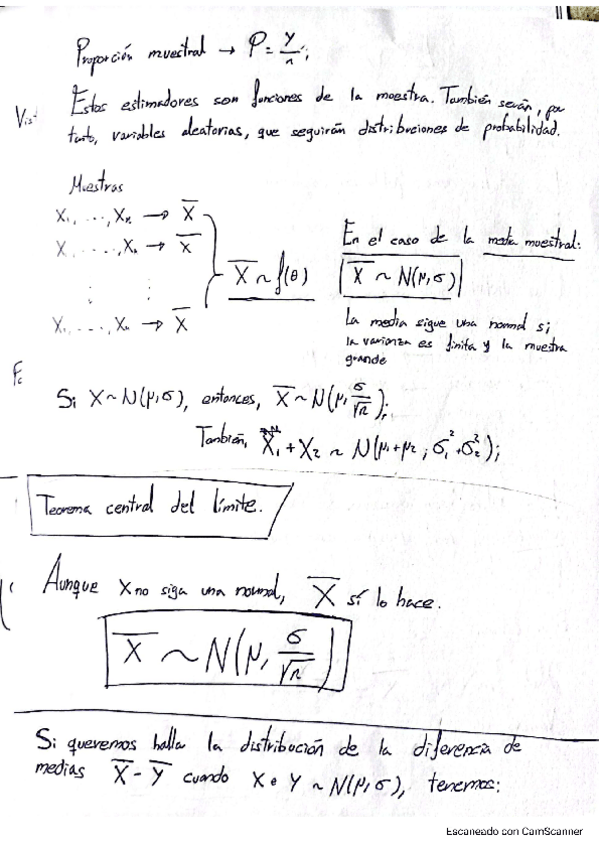 Proporción muestral → P = y/n ;
Vis
Estos estimadores son funciones de la muestra. También serán, por
tanto, variables aleatorias, que seguirán distribuciones de probabilidad.
Muestras
X₁, ..., Xₙ → X̄
X, ..., Xₙ → X̄
⋮ ⋮
X₁, ..., Xₙ → X̄
X̄ ~ f(θ)
En el caso de la media muestral:
X̄ ~ N(μ, σ)
La media sigue una normal si
la varianza es finita y la muestra
grande
Si X ~ N(μ, σ), entonces, X̄ ~ N(μ, σ/√n);
También, X₁ + X₂ ~ N(μ₁+μ₂ ; σ₁²+σ₂²);
Teorema central del límite.
Aunque X no siga una normal, X̄ sí lo hace.
X̄ ~ N(μ, σ/√n)
Si queremos halla la distribución de la diferencia de
medias X̄ - Ȳ cuando X e Y ~ N(μ, σ), tenemos:
Escaneado con CamScanner